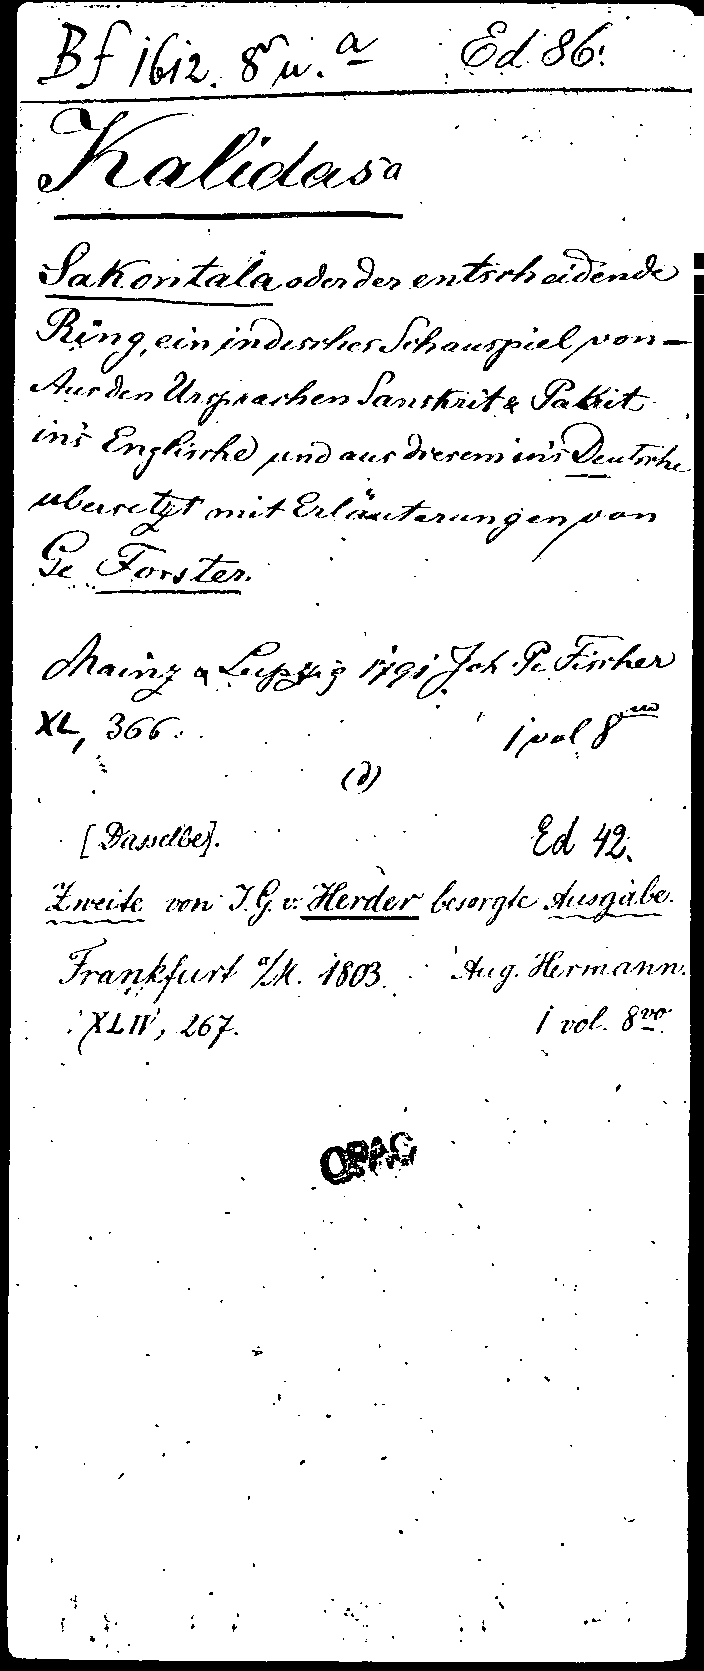 Bf 1612. 8° u. a Ed 86.
Kalidasa
Sakontala oder der entscheidende
Ring, ein indisches Schauspiel von —
Aus den Ursprachen Sanskrit & Pakrit
in's Englische und aus diesem in's Deutsche
übersetzt mit Erläuterungen von
Ge Forster.
Mainz & Leipzig 1791 Joh. Pe. Fischer
XL, 366. 1 vol 8vo
(d)
[Dasselbe]. Ed 42.
Zweite von J. G. v. Herder besorgte Ausgabe.
Frankfurt a/M. 1803. Aug. Hermann.
XLIV, 267. 1 vol. 8vo.
OPAC